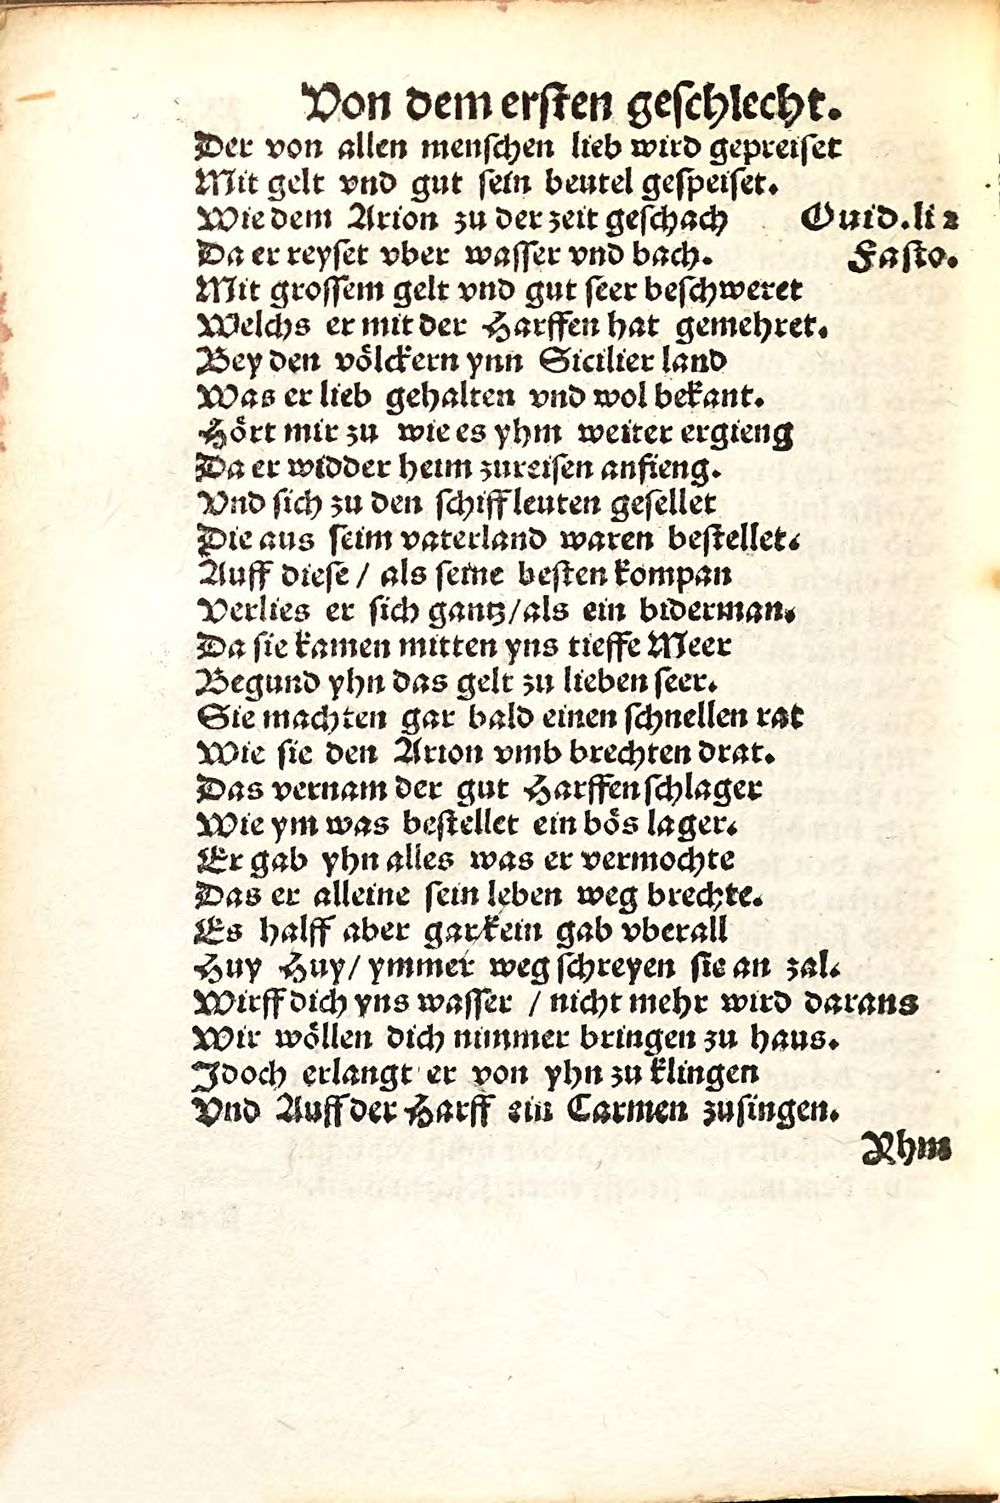 Von dem ersten geschlecht.
Der von allen menschen lieb wird gepreiset
Mit gelt vnd gut sein beutel gespeiset.
Wie dem Arion zu der zeit geschach Ouid. li 2
Da er reyset vber wasser vnd bach. Fasto.
Mit grossem gelt vnd gut seer beschweret
Welchs er mit der Harffen hat gemehret.
Bey den völckern ynn Sicilier land
Was er lieb gehalten vnd wol bekant.
Hört mir zu wie es yhm weiter ergieng
Da er widder heim zureisen anfieng.
Vnd sich zu den schiffleuten gesellet
Die aus seim vaterland waren bestellet.
Auff diese / als seine besten kompan
Verlies er sich gantz / als ein biderman.
Da sie kamen mitten yns tieffe Meer
Begund yhn das gelt zu lieben seer.
Sie machten gar bald einen schnellen rat
Wie sie den Arion vmb brechten drat.
Das vernam der gut Harffenschlager
Wie ym was bestellet ein bös lager.
Er gab yhn alles was er vermochte
Das er alleine sein leben weg brechte.
Es halff aber gar kein gab vberall
Huy Huy / ymmer weg schreyen sie an zal.
Wirff dich yns wasser / nicht mehr wird daraus
Wir wöllen dich nimmer bringen zu haus.
Jdoch erlangt er von yhn zu klingen
Vnd Auff der Harff ein Carmen zusingen.
Yhm